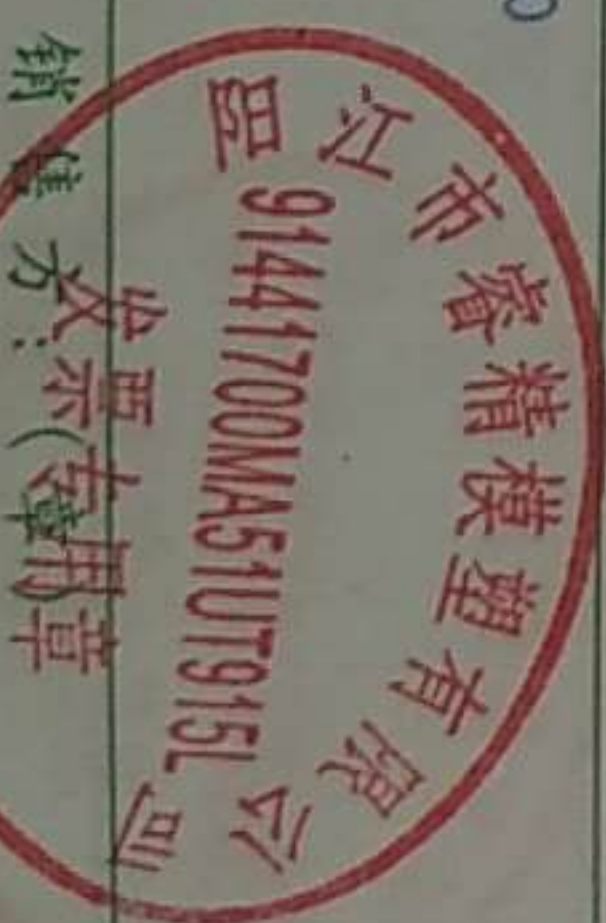 阳江市睿精模塑有限公司
91441700MA51UT915L
发票专用章
销售方:(章)